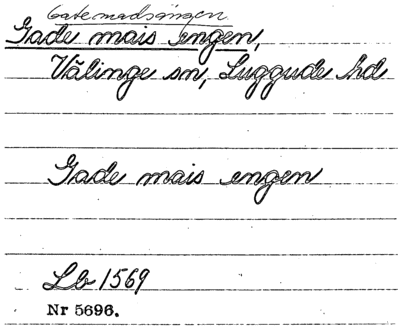 Gatemadsängen
Gade mais engen,
Välinge sn, Luggude hd
Gade mais engen
Lb 1569
Nr 5696.